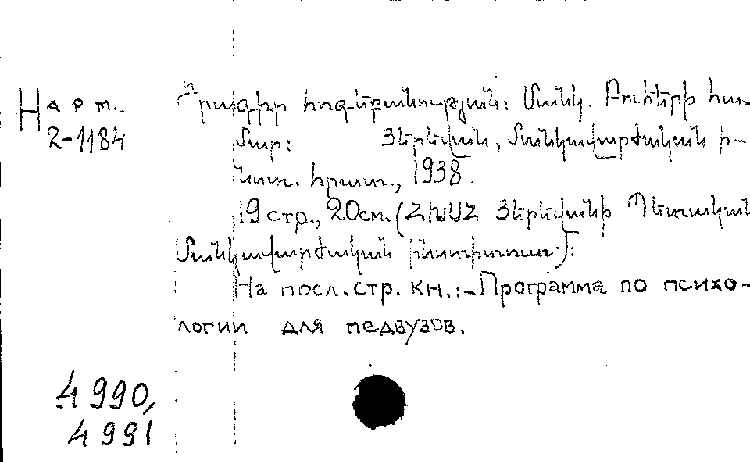 На рт.
2-1184
Ծրագիր հոգեբանության: Մանկ. Բուհերի հա-
մար: Յերեվան, Մանկավարժական ի-
նստ. հրատ., 1938.
19 стр., 20см. (ՀԽՍՀ Յերեվանի Պետական
Մանկավարժական ինստիտուտ):
На посл. стр. кн.:-Программа по психо-
логии для педвузов.
4990,
4991